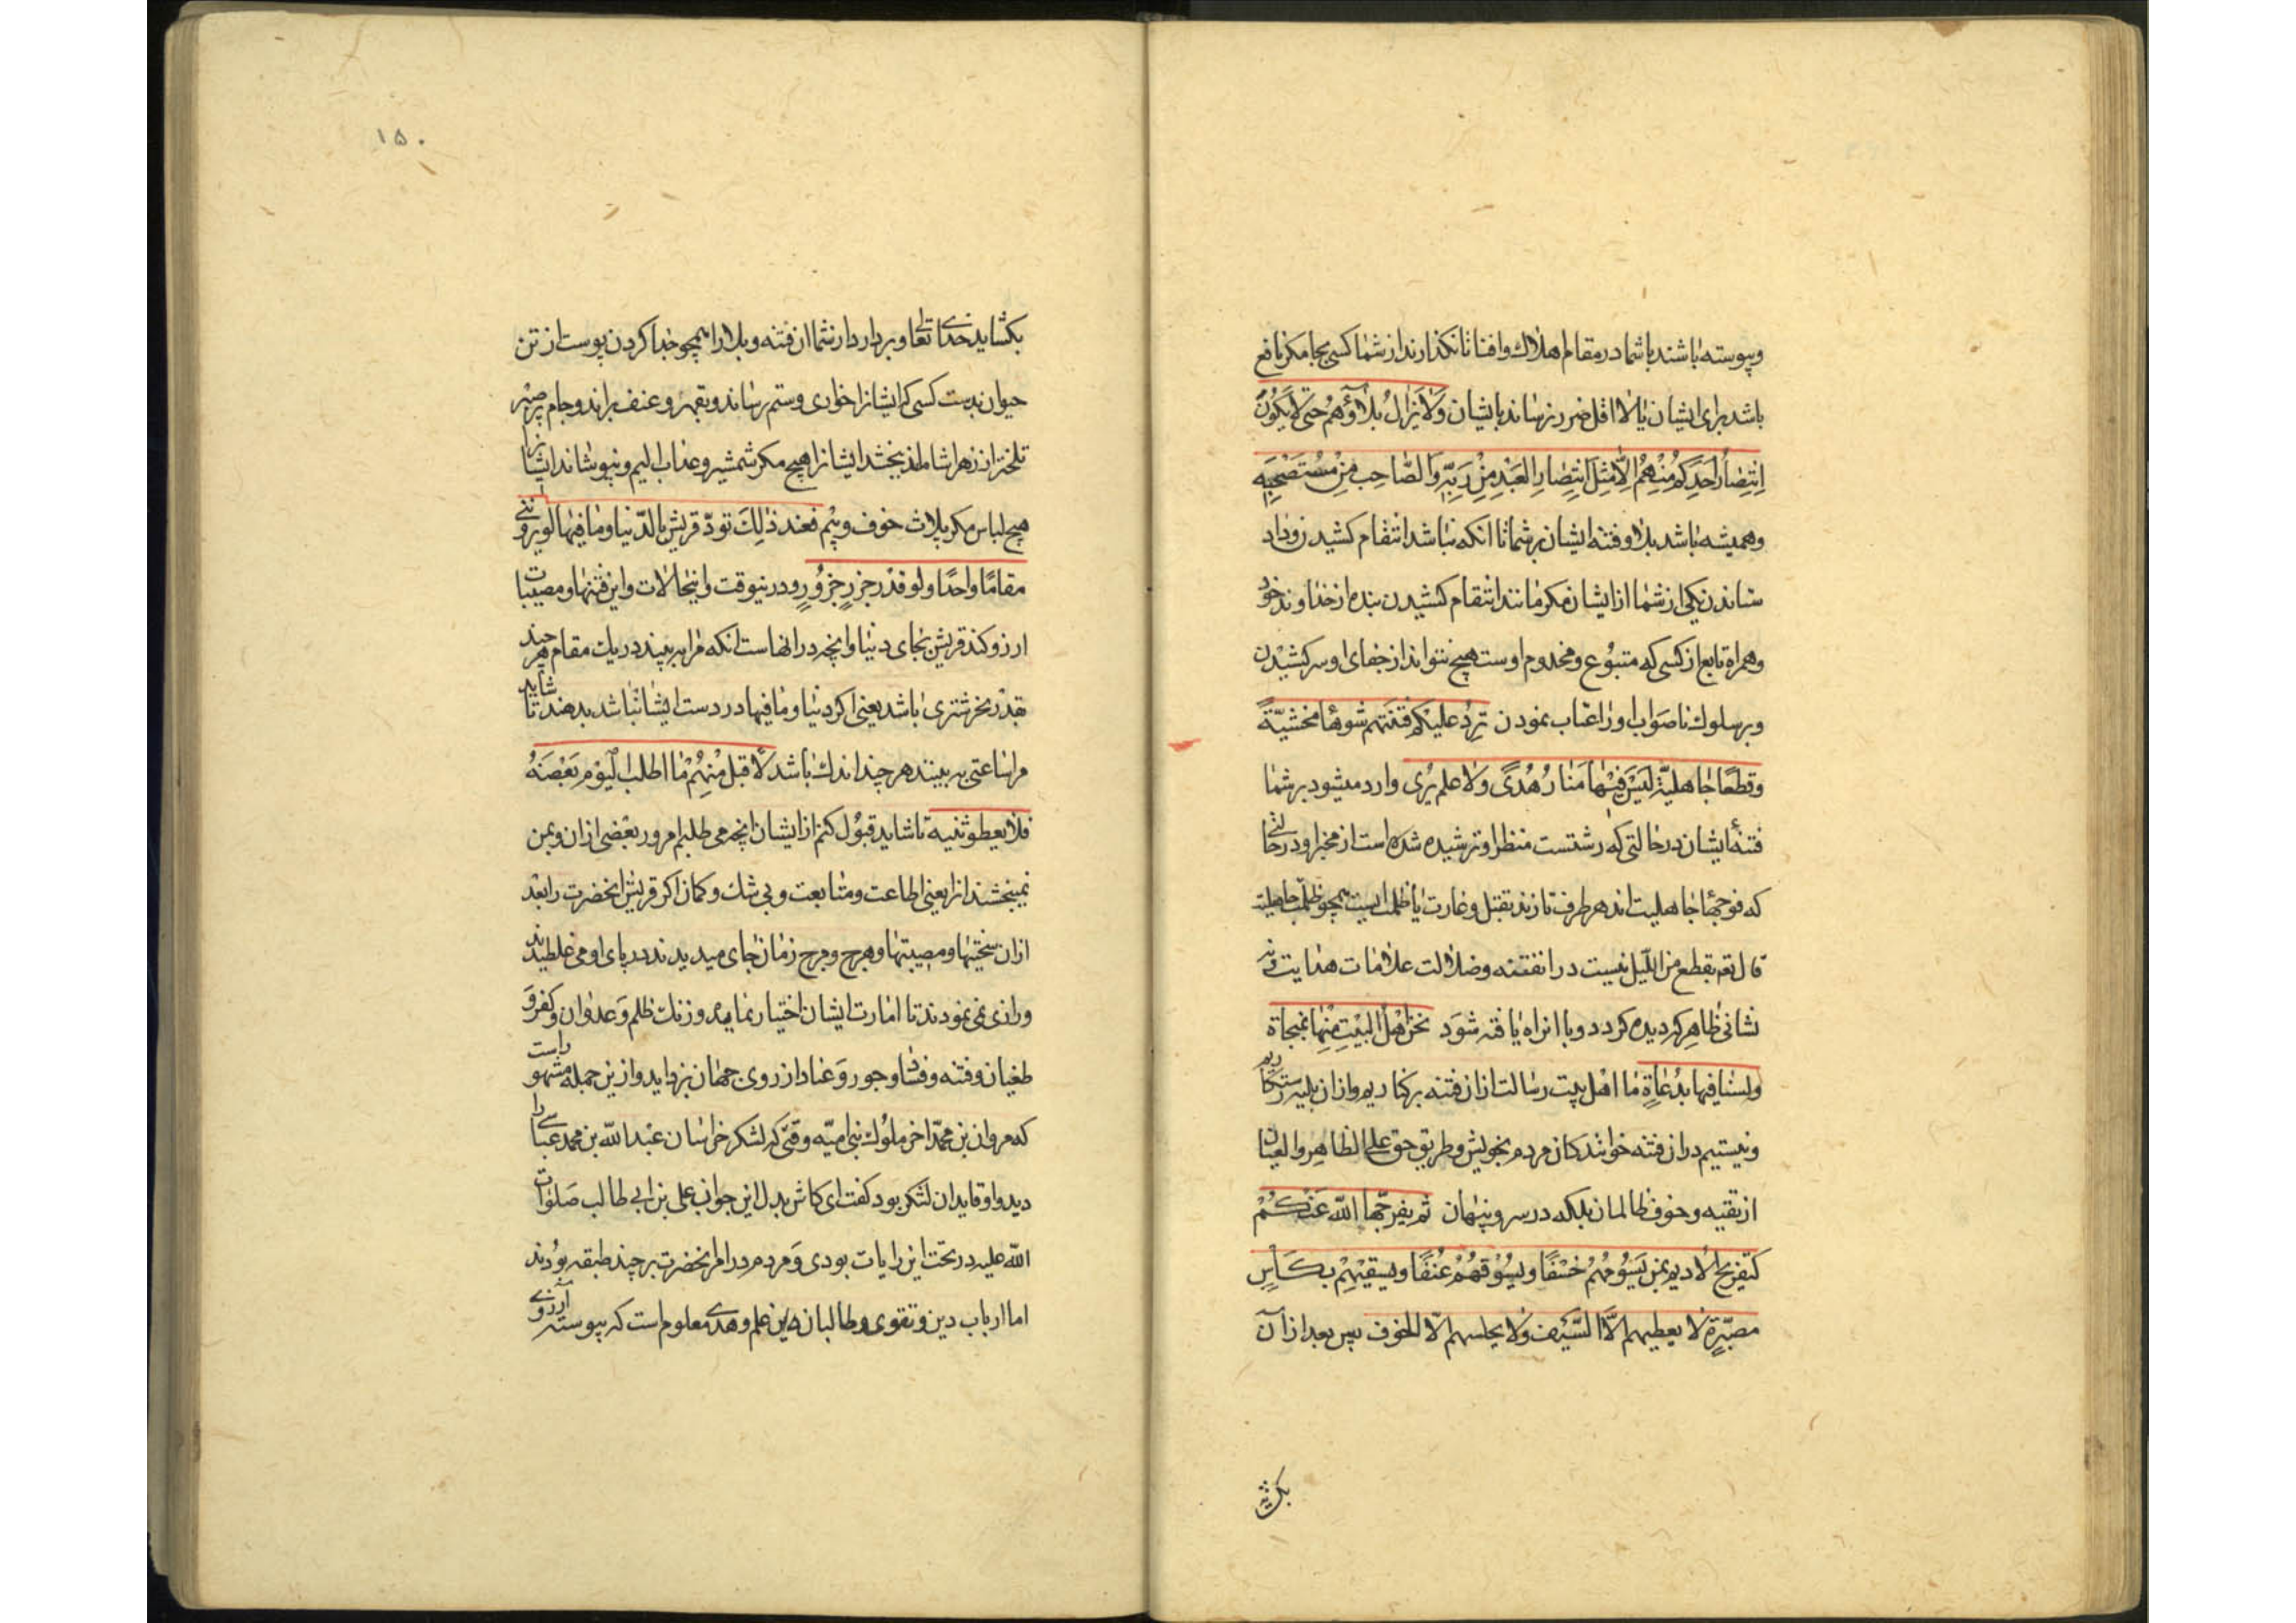 وپیوسته باشند باشما در مقام اهلاك وافنا تا نكذارند از شما كسی بجا مكر نافع
باشد برای ایشان یا لا اقل ضرر نرساند بایشان وَلا یَزالُ بَلآؤُهُم حتی لا یَكُونَ
اِنتِصارُ اَحَدِكُم مِنْهُم اِلّا مِثلَ انتِصارِ العَبْدِ مِنْ رَبِّهِ وَالصّاحِبِ مِنْ مُسْتَصْحِبِهِ
وهمیشه باشد بلا وفتنه ایشان بر شما تا انكه نباشد انتقام كشیدن وداد
ستاندن یكی از شما از ایشان مكر مانند انتقام كشیدن بنده از خداوند خود
وهمراه تابع از كسی كه متبوع ومخدوم اوست هیچ نتواند از جفای او سر كشیدن
وبر سلوك ناصواب او را عتاب نمودن تَرِدُ علیكم فتنتهم شوهًا مخشیّةً
وقطعًا جاهلیّة لَیسَ فیها مَنارُ هُدًی ولا علم یُری وارد میشود بر شما
فتنهٔ ایشان در حالتی كه زشتست منظر او ترسیده شده است از مخبر او در حالتی
كه فوجها جاهلیت اند هر طرف تازند بقتل وغارت یا ظلمت است همچو ظلمت جاهلیت
قال تعه بقطع من اللّیل نیست در انفتنه وضلالت علامات هدایت ونه
نشانی ظاهر كه دیده كردد وبا ان راه یافته شود نحن اهل البیتِ مِنها بمنجاة
ولسنا فیها بدُعاةٍ ما اهل بیت رسالت ازان فتنه بر كناریم وازان بلیه رستكاریم
ونیستیم دران فتنه خوانندكان مردم بخویش وطریق حق علی الظاهر والعیان
از تقیه وخوف ظالمان بلكه در سر وپنهان ثم یفرّجها اللّه عَنْكُمْ
كتفریج الادیم بمن یَسُومُهُمْ خَسْفًا ویَسُوْقُهُمْ عُنْفًا ویسقیهِمْ بِكَاْسٍ
مصبّرةٍ لا یعطیهم الّا السَّیْف ولا یحلسهم الّا الخوف پس بعد ازان
بكشاید
۱۵۰
بكشاید خدای تعالی وبردارد از شما ان فتنه وبلا را همچو جدا كردن پوست از تن
حیوان بدست كسی كه ایشانرا خواری وستم رساند وبقهر وعنف براند وجام پر صبر
تلختر از زهر اشاماند نبخشد ایشانرا هیچ مكر شمشیر وعذاب الیم ونپوشاند ایشانرا
هیچ لباس مكر پلاس خوف وبیم فعند ذٰلِكَ تودّ قریش بالدّنیا وما فیها لو یروننی
مقامًا واحدًا ولو قدر جزرِ جزُورٍ ودرینوقت واینحالات واین فتنها ومصیبات
ارزو كند قریش بجای دنیا وانچه در انهاست انكه مرا ببینند در یك مقام هر چند
بقدر نحر شتری باشد یعنی اكر دنیا وما فیها در دست ایشان باشد بدهند تا شاید
مرا ساعتی ببینند هر چند اندك باشد لأقبل مِنهُمْ ما اطلب الیَوْم بَعْضَهُ
فلا یعطوننیه تا شاید قبول كنم از ایشان انچه می طلبم امروز بعضی ازان وبمن
نمیبخشند انرا یعنی اطاعت ومتابعت وبی شك وكمان اكر قریش انحضرت را بعد
ازان سختیها ومصیبتها وهرج ومرج زمان جای میدیدند در پای او می غلطیدند
وزاری می نمودند تا امارت ایشان اختیار نماید وزنك ظلم وعدوان وكفر و
طغیان وفتنه وفساد وجور وعناد از روی جهان بزداید وازین جمله مشهور است
كه مروان بن محمّد اخر ملوك بنی امیّه وقتی كه لشكر خراسان عبد اللّه بن محمد عباسی را
دید واو قاید ان لشكر بود كفت ای كاش بدل این جوان علی بن ابی طالب صلوات
اللّه علیه در تحت این رایات بودی ومردم در امر انحضرت بر چند طبقه بودند
اما ارباب دین وتقوی وطالبان علم وهدی معلوم است كه پیوسته ارزوی